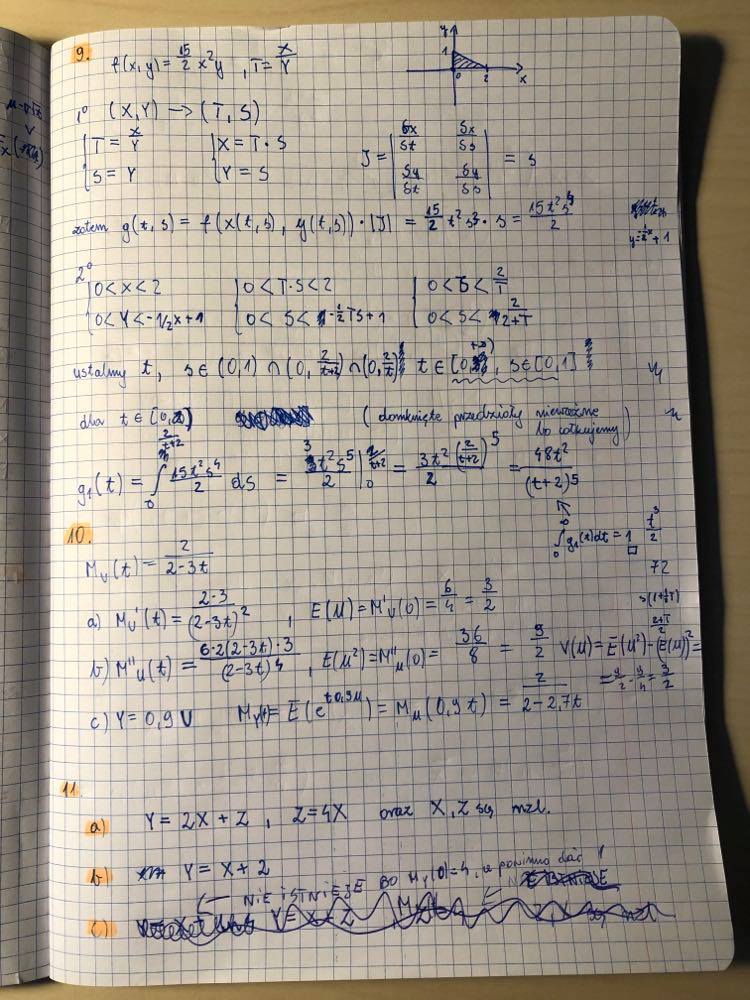 9. f(x,y) = 15/2 x²y , T = X/Y
y
1
0 2 x
1° (X,Y) → (T, S)
{ T = X/Y { X = T·S J = | δx/δt δx/δs | = s
{ S = Y { Y = S | δy/δt δy/δs |
zatem g(t,s) = f(x(t,s), y(t,s))·|J| = 15/2 t²s³·s = 15t²s⁴/2
y = -1/2x + 1
2°
{ 0 < X < 2 { 0 < T·S < 2 { 0 < S < 2/T
{ 0 < Y < -1/2x+1 { 0 < S < -1/2TS+1 { 0 < S < 2/2+T
ustalmy t, s ∈ (0,1) ∩ (0, 2/t+2) ∩ (0, 2/t) t ∈ [0, +∞), s ∈ [0,1]
dla t ∈ [0,∞) (domknięte przedziały nieważne bo całkujemy)
g₁(t) = ∫₀^(2/t+2) 15t²s⁴/2 ds = 3t²s⁵/2 |₀^(2/t+2) = 3t²(2/t+2)⁵/2 = 48t²/(t+2)⁵
∫₀^∞ g₁(t)dt = 1 □
t³/2
72
10.
M_U(t) = 2/2-3t
s(1+1/2T)
2+T/2
a) M_U'(t) = 2·3/(2-3t)² , E(U) = M'_U(0) = 6/4 = 3/2
b) M''_U(t) = 6·2(2-3t)·3/(2-3t)⁴ , E(U²) = M''_U(0) = 36/8 = 9/2 V(U) = E(U²) - (E(U))² =
= 9/2 - 9/4 = 3/2
c) Y = 0,9 U M_Y(t) = E(e^(t0,9U)) = M_U(0,9t) = 2/2-2,7t
11.
a) Y = 2X + Z , Z = 4X oraz X, Z są nzl.
b) Y = X + 2
← NIE ISTNIEJE BO M_Y(0)=4, a powinno dać 1
c)